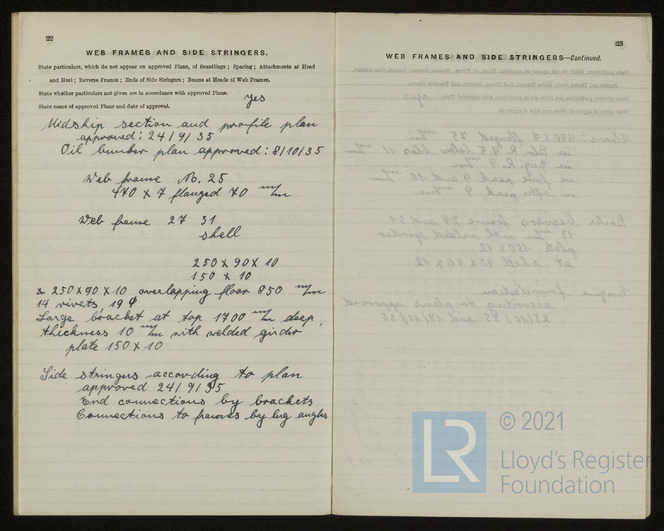 22
WEB FRAMES AND SIDE STRINGERS.
State particulars, which do not appear on approved Plans, of Scantlings; Spacing; Attachments at Head
and Heel; Reverse Frames; Ends of Side Stringers; Beams at Heads of Web Frames.
State whether particulars not given are in accordance with approved Plans.
yes
State name of approved Plans and date of approval.
Midship section and profile plan
approved: 24/9/35
Oil bunker plan approved: 8/10/35
Web frame No. 25
470 x 7 flanged 70 m/m
Web frame 27 31
shell
250 x 90 x 10
150 x 10
250 x 90 x 10 overlapping floor 850 m/m
14 rivets 19 ϕ
Large bracket at top 1700 m/m deep,
thickness 10 m/m with welded girder
plate 150 x 10
Side stringers according to plan
approved 24/9/35
End connections by brackets
Connections to frames by lug angles
23
WEB FRAMES AND SIDE STRINGERS—Continued.
LR
© 2021
Lloyd's Register
Foundation